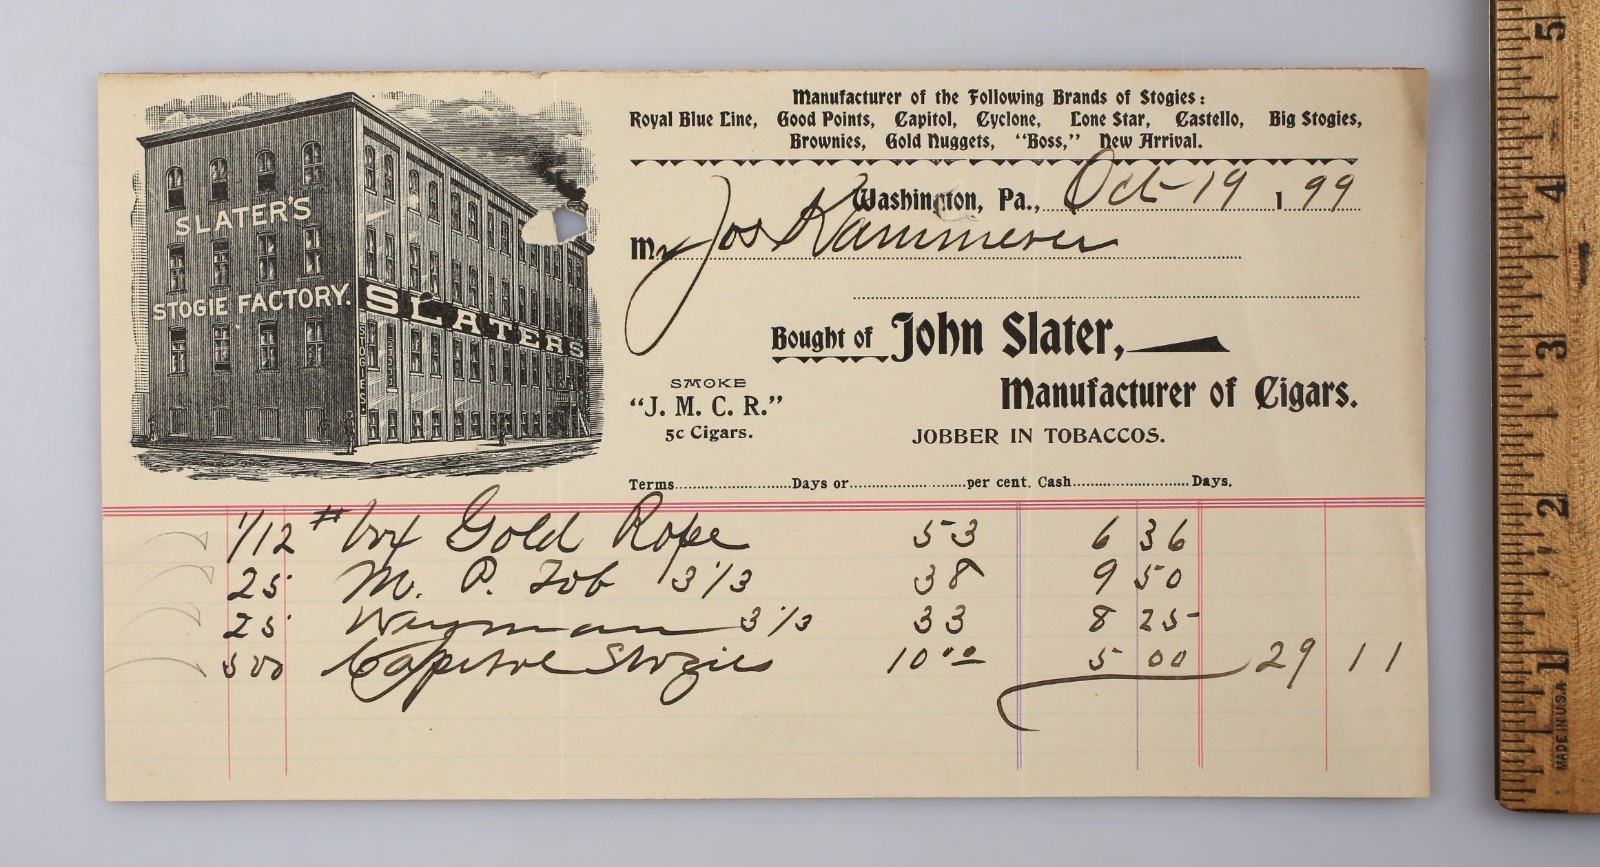 Manufacturer of the Following Brands of Stogies:
Royal Blue Line, Good Points, Capitol, Cyclone, Lone Star, Castello, Big Stogies,
Brownies, Gold Nuggets, "Boss," New Arrival.
SLATER'S
STOGIE FACTORY.
SLATERS
STOGIES
Washington, Pa., Oct 19 1 99
Mr Jos Kammerer
Bought of John Slater,
Manufacturer of Cigars.
JOBBER IN TOBACCOS.
SMOKE
"J. M. C. R."
5c Cigars.
Terms Days or per cent. Cash Days.
1/12 # box Gold Rope 53 6 36
25 M. P. Tob 3 1/3 38 9 50
25 Weyman 3 1/3 33 8 25
500 Capitol Stogies 10 00 5 00 29 11
5
4
3
2
1
MADE IN U.S.A